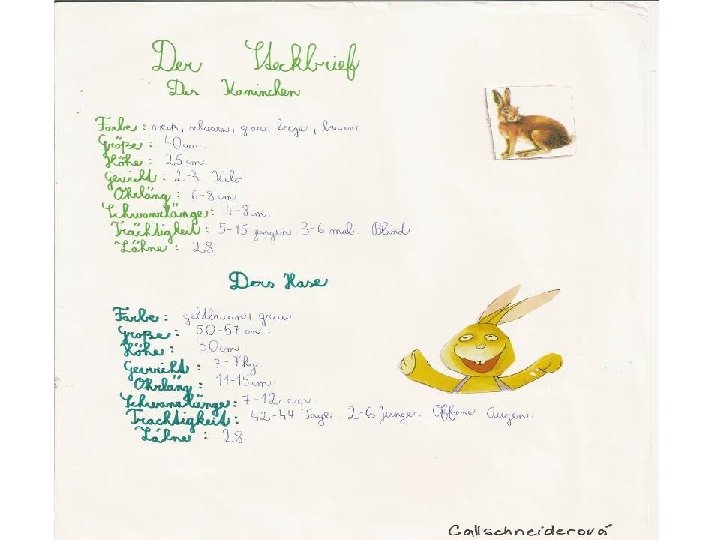 Der Steckbrief
Das Kaninchen
Farbe: weiß, schwarz, grau, beige, braun
Größe: 40 cm
Höhe: 25 cm
Gewicht: 2-3 Kilo
Ohrläng: 6-8 cm
Schwanzlänge: 4-8 cm.
Trächtigkeit: 5-15 jungen 3-6 mal. Blind
Zähne: 28
Dors Hase
Farbe: gelbbraun, grau
Große: 50-67 cm.
Höhe: 30 cm
Gewicht: 3-7kg.
Ohrläng: 11-15cm
Schwanzlänge: 7-12 cm.
Trachtigkeit: 42-44 Tage. 2-6 Junge. Offene Augen.
Zähne: 28
Gallschneiderová